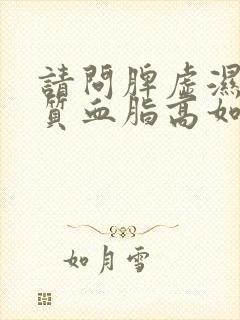 請問脾虛濕
質血脂高如
如月雪